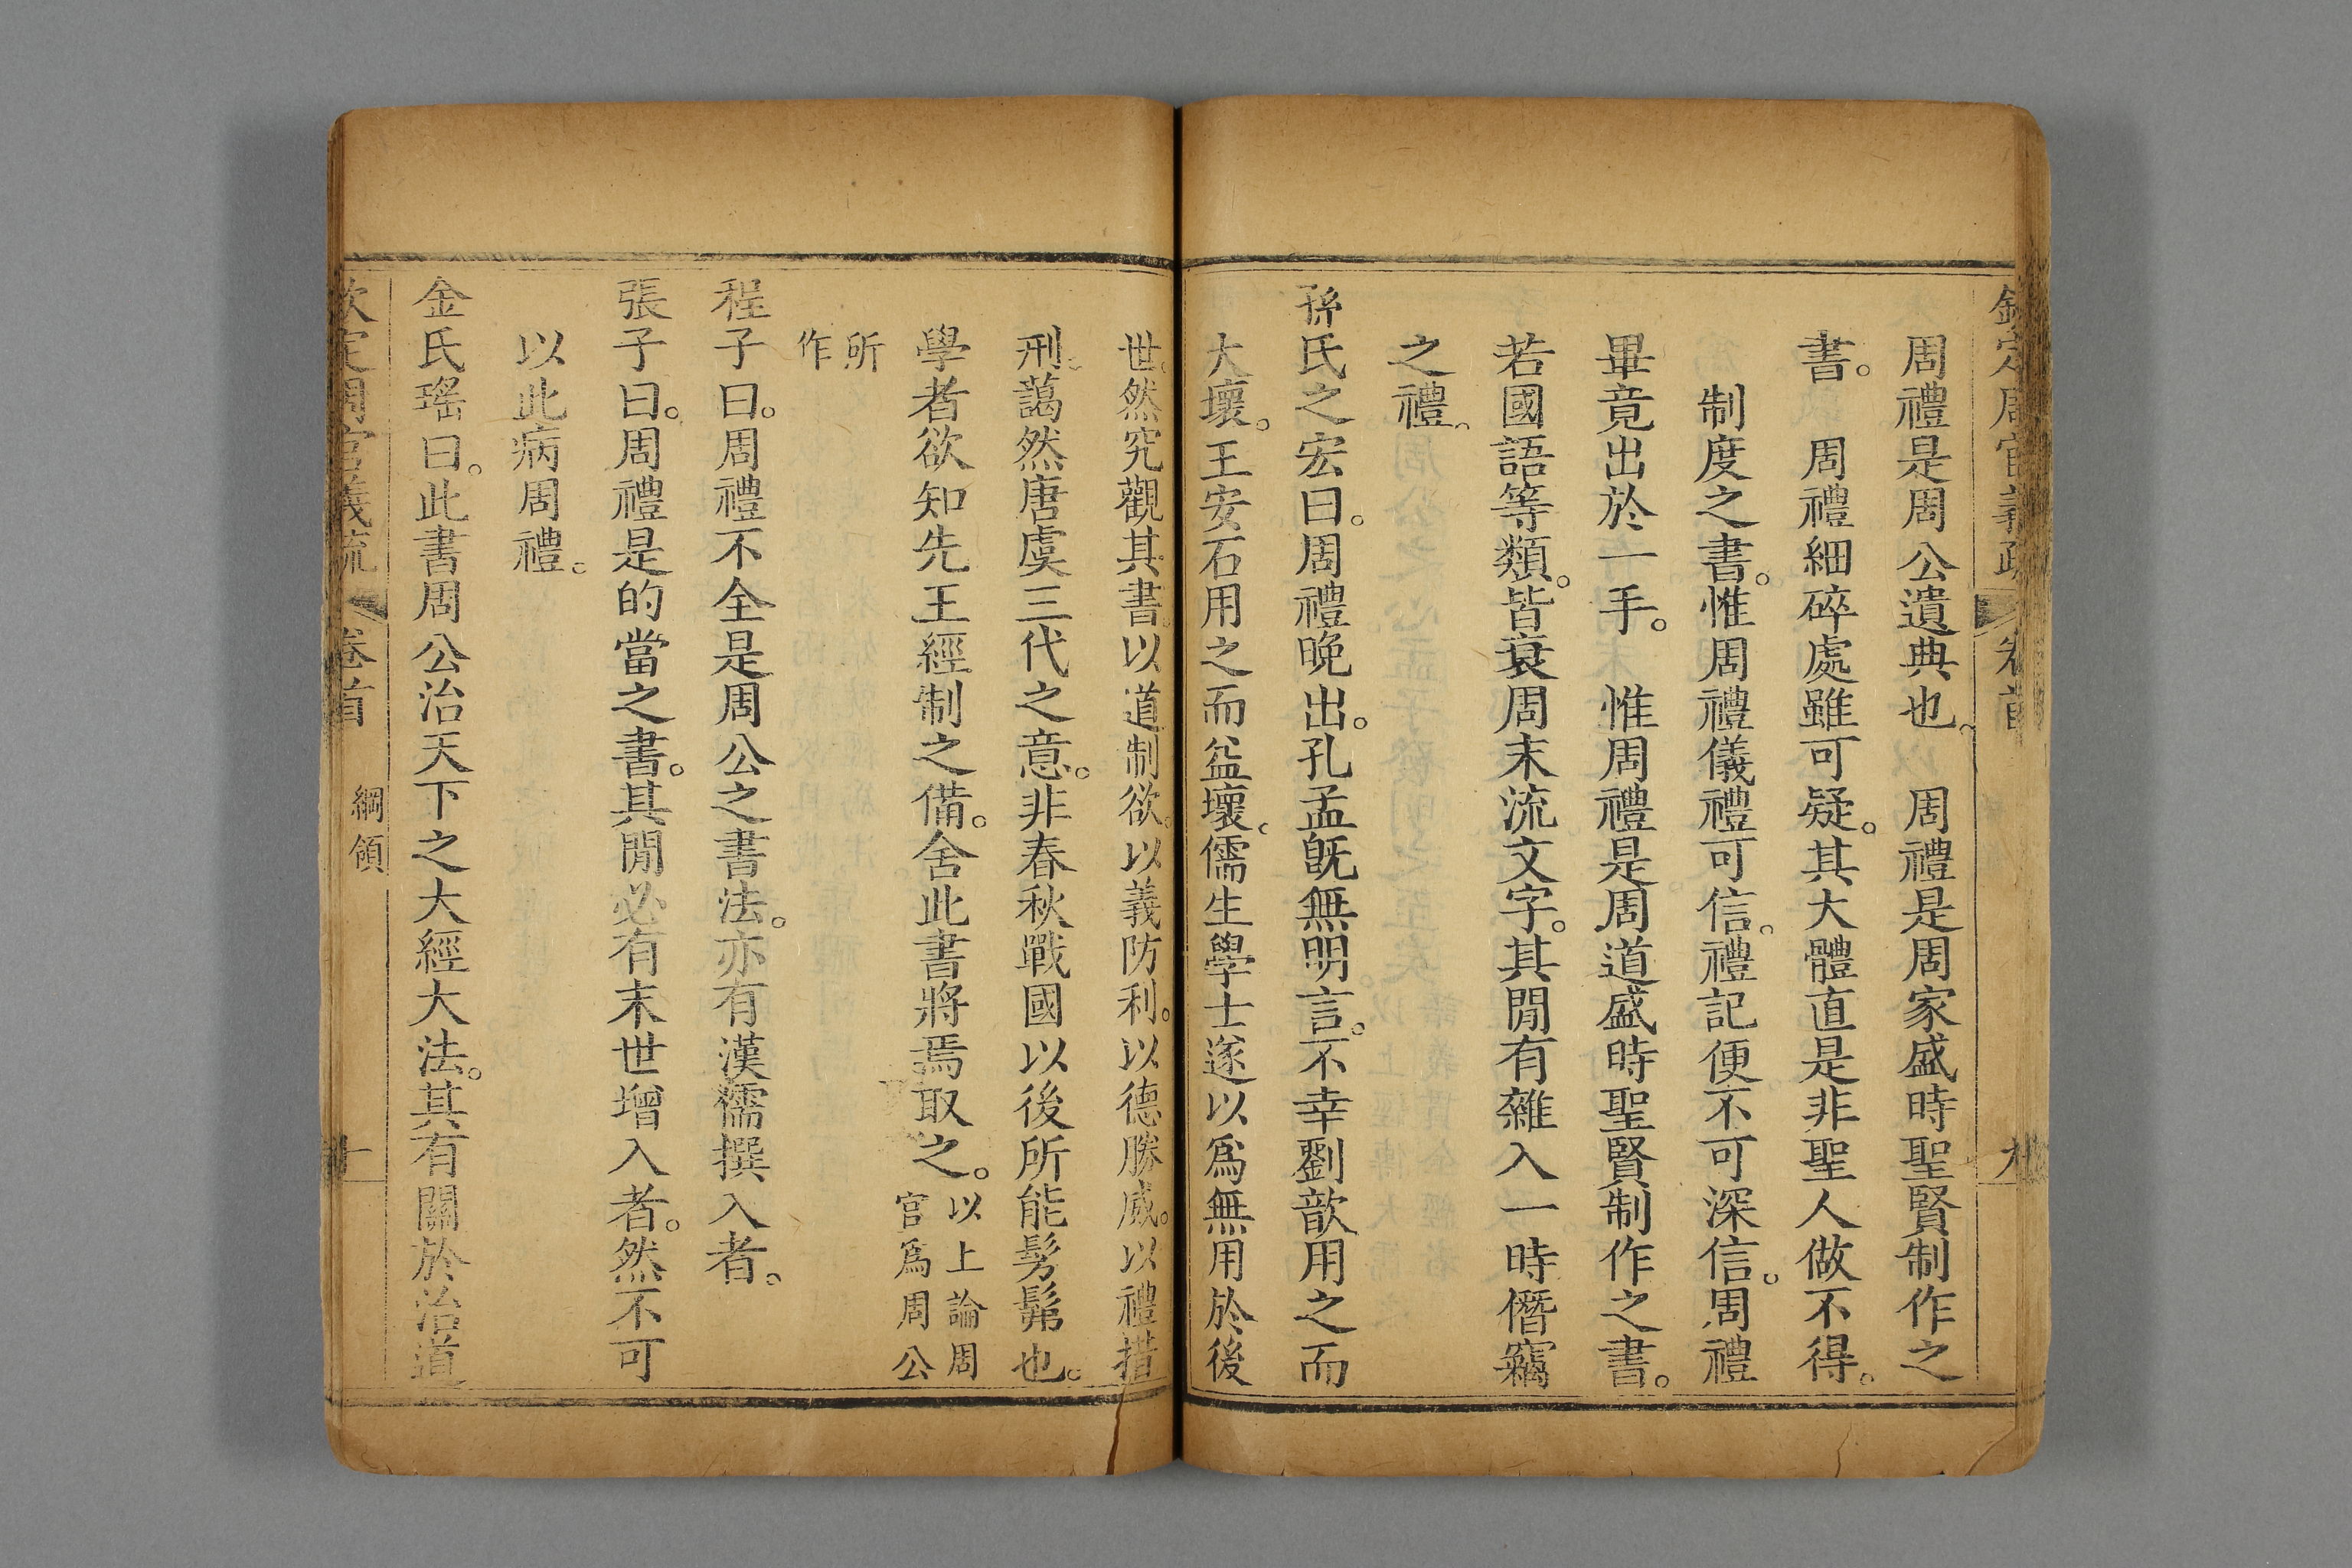 欽定周官義疏 卷首 九
周禮是周公遺典也 周禮是周家盛時聖賢制作之
書。 周禮細碎處雖可疑。其大體直是非聖人做不得。
制度之書。惟周禮儀禮可信。禮記便不可深信。周禮
畢竟出於一手。 惟周禮是周道盛時聖賢制作之書。
若國語等類。皆衰周末流文字。其閒有雜入一時僭竊
之禮。
孫氏之宏曰。周禮晚出。孔孟旣無明言。不幸劉歆用之而
大壞。王安石用之而益壞。儒生學士遂以爲無用於後
世。然究觀其書。以道制欲。以義防利。以德勝威。以禮措
刑。藹然唐虞三代之意。非春秋戰國以後所能髣髴也。
學者欲知先王經制之備。舍此書將焉取之。以上論周
官爲周公
所
作
程子曰。周禮不全是周公之書法。亦有漢儒撰入者。
張子曰。周禮是的當之書。其閒必有末世增入者。然不可
以此病周禮。
金氏瑤曰。此書周公治天下之大經大法。其有關於治道
欽定周官義疏 卷首 綱領 十